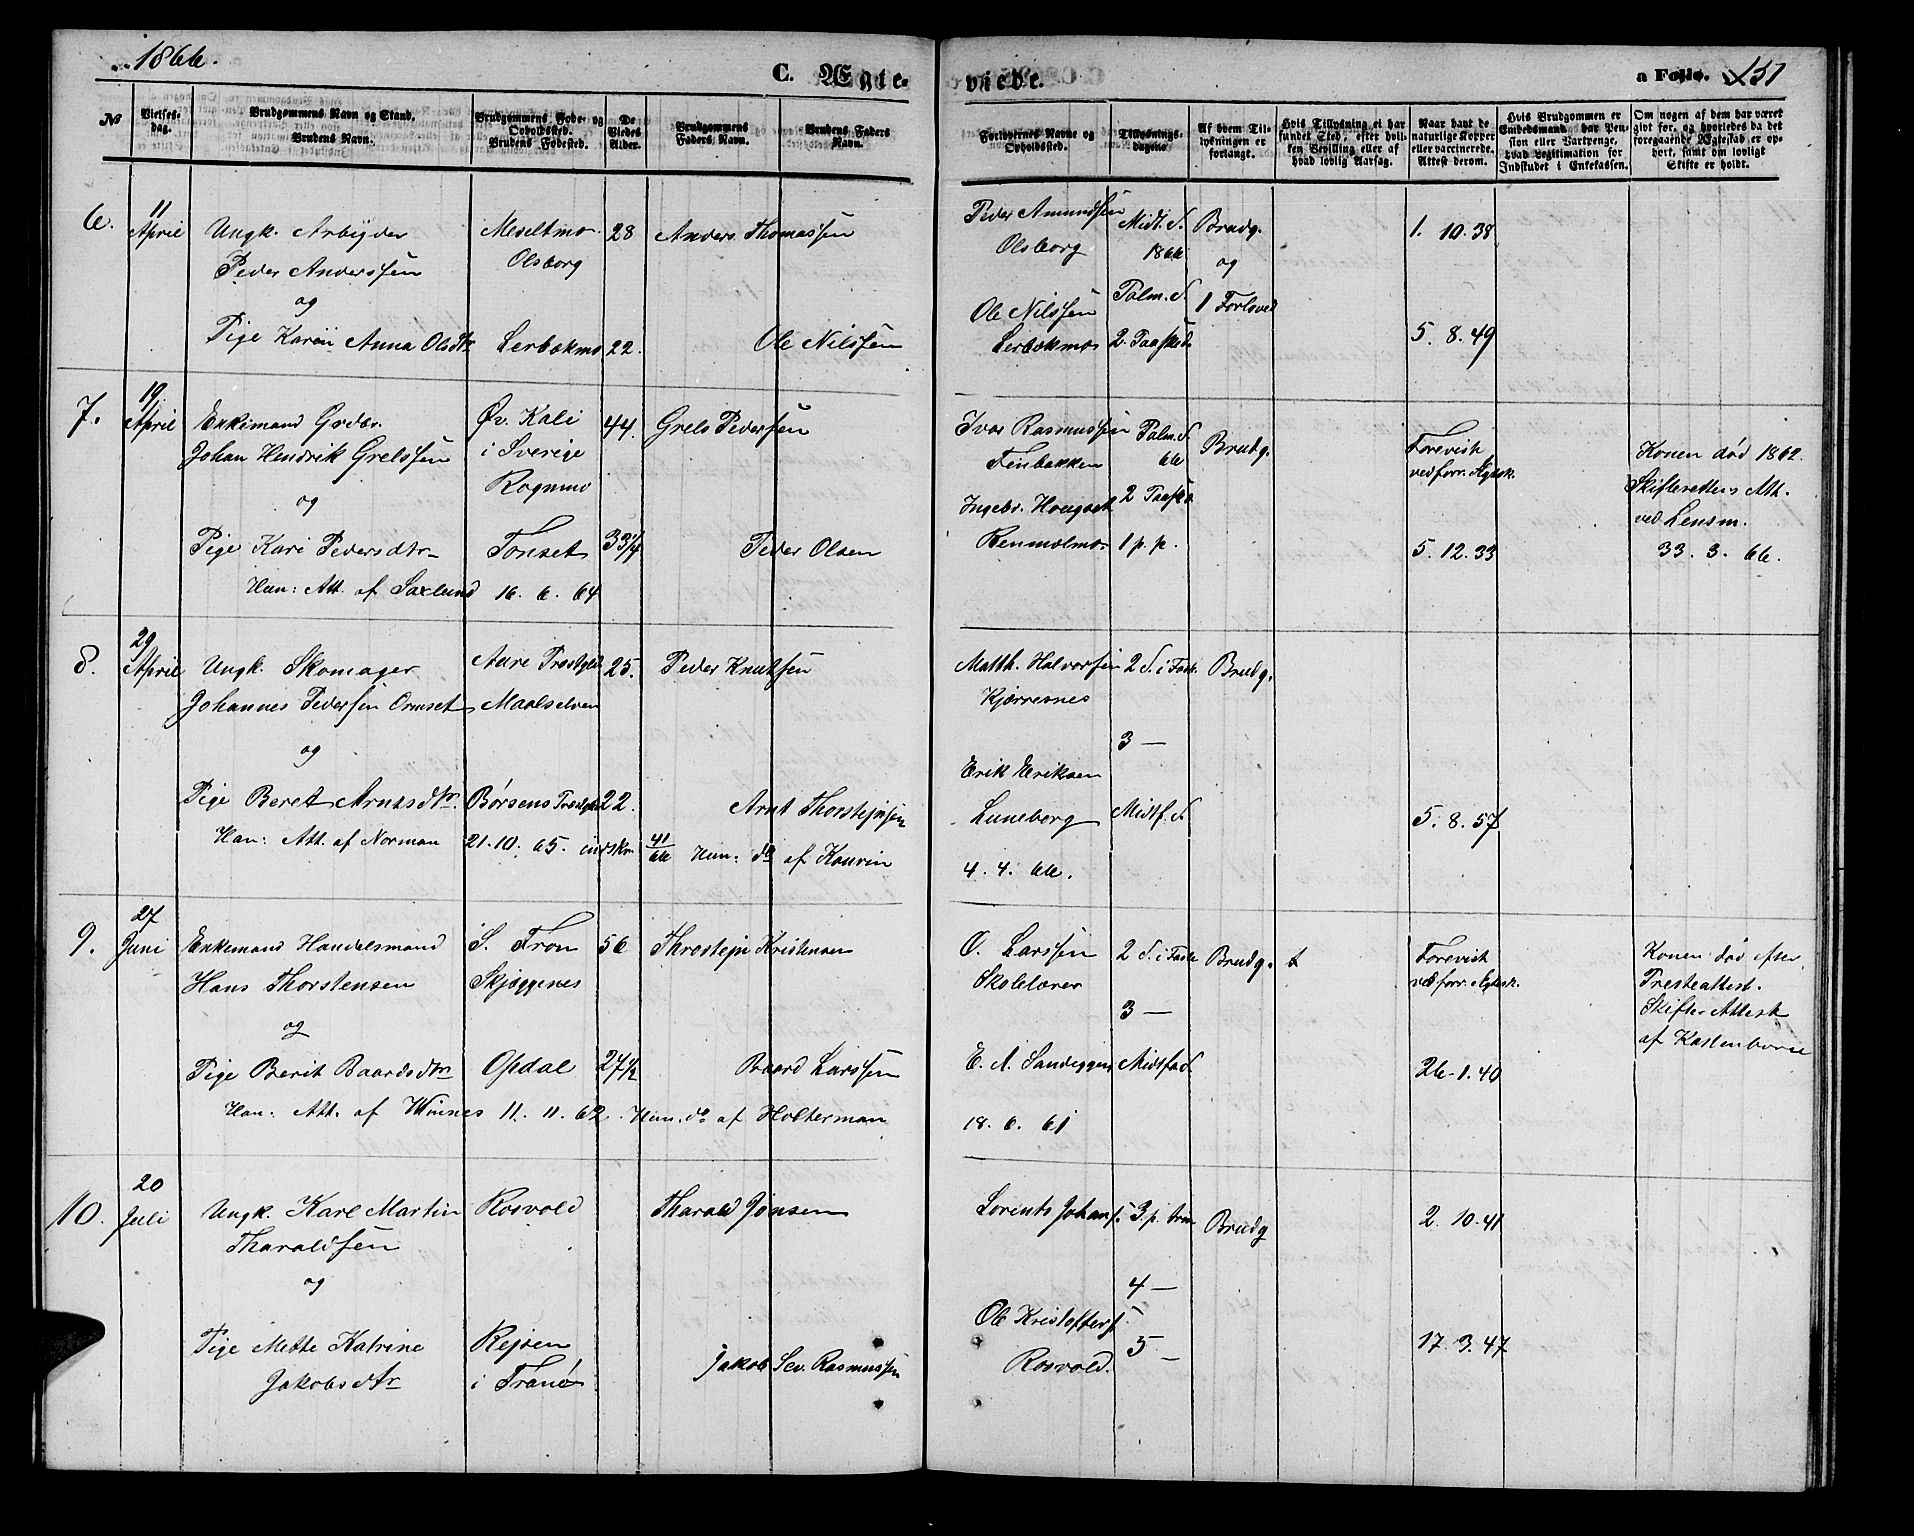 1866.
C. Ægte-
viede.
a Folio. 151
№
Vielses-
dag.
Brudgommens Navn og Stand.
Brudens Navn.
Brudgommens Føde- og
Opholdssted.
Brudens Fødested.
De
Viedes
Alder.
Brudgommens
Faders Navn.
Brudens Faders
Navn.
Forlovernes Navne og
Opholdssted.
Tillysnings-
dagene
Af hvem Til-
lysningen er
forlangt.
Hvis Tillysning ei har
fundet Sted, efter hvil-
ken Bevilling eller af
hvad lovlig Aarsag.
Naar havt de
naturlige Kopper
eller vaccinerede.
Attest derom.
Hvis Brudgommen er
Embedsmand, har Pen-
sion eller Vartpenge,
hvad Legitimation for
Indskudet i Enkekassen.
Om nogen af dem har været
gift før, og hvorledes da det
foregaaende Ægteskab er op-
hørt, samt om lovligt
Skifte er holdt.
6.
11
April
Ungk. Arbejder
Peder Anderssen
og
Pige Karen Anna Olsdtr
Olsborg
Lerbækmo
28
22.
Anders Thomassen
Ole Nilssen
Peder Amundsen
Olsborg
Ole Nilssen
Lerbækmo
Midf. S.
1866
Palm. S.
2 Paaskd
Brudg.
og
1 Forlover
1. 10. 38
5. 8. 49
7.
19
April
Enkemand Grdbr.
Johan Hendrik Grelssen
og
Pige Kari Pedersdtr
Hun: Att. af Saxlund 16. 6. 64
Øv. Kali
i Sverige
Rognmo
Tønset
44.
33 1/4
Grels Pedersen
Peder Olsen
Ivar Rasmussen
Finbakken
Ingebr. Hougset
Renmolmo
Palm. S.
66
2 Paaskd.
1 p. p.
Brudg.
Forevist
ved forr. Ægtesk.
5. 12. 33
Konen død 1862.
Skifterettens Att.
ved Lensm.
33. 3. 66.
8.
29
April
Ungk. Skomager
Johannes Pedersen Ormset
og
Pige Beret Arntsdtr.
Han: Att. af Norman 21. 10. 65. indskr. 41/66 Hun: do af Kaurin
4. 4. 66.
Aure Prestgld
Maalselven
Børsens Prestgld
25.
22.
Peder Knutsen
Arnt Thorstejnsen
Matth. Halvorsen
Kjærresnes
Erik Eriksen
Luneborg
2 S. i Fast.
3 —
Midtf. S.
Brudg.
5. 8. 57
9.
27
Juni
Enkemand Handelsmand
Hans Thorstensen
og
Pige Berit Baardsdtr
Han: Att. af Winsnes 11. 11. 62. Hun. do af Holterman
18. 6. 61
S. Fron
Skjæggenes
Opdal
56
27 1/2
Throstejn Kristensen
Baard Larssen
O. Larssen
Skolelærer
E. A. Sandeggen
2 S. i Faste
3 —
Midtfa S.
Brudg.
Forevist
ved forr. Ægtesk.
26. 1. 40
Konen død efter
Presteattest.
Skifte-Attest
af Kastenborie
10.
20
Juli
Ungk. Karl Martin
Tharaldsen
og
Pige Mette Katrine
Jakobsdtr
Rosvold
Rejsen
i Tranø
Tharald Jonsen
Jakob Sev. Rasmussen
Lorents Johans.
Ole Kristoffers.
Rosvold.
3. p. trin
4 —
5 —
Brudg
2. 10. 41
17. 3. 47